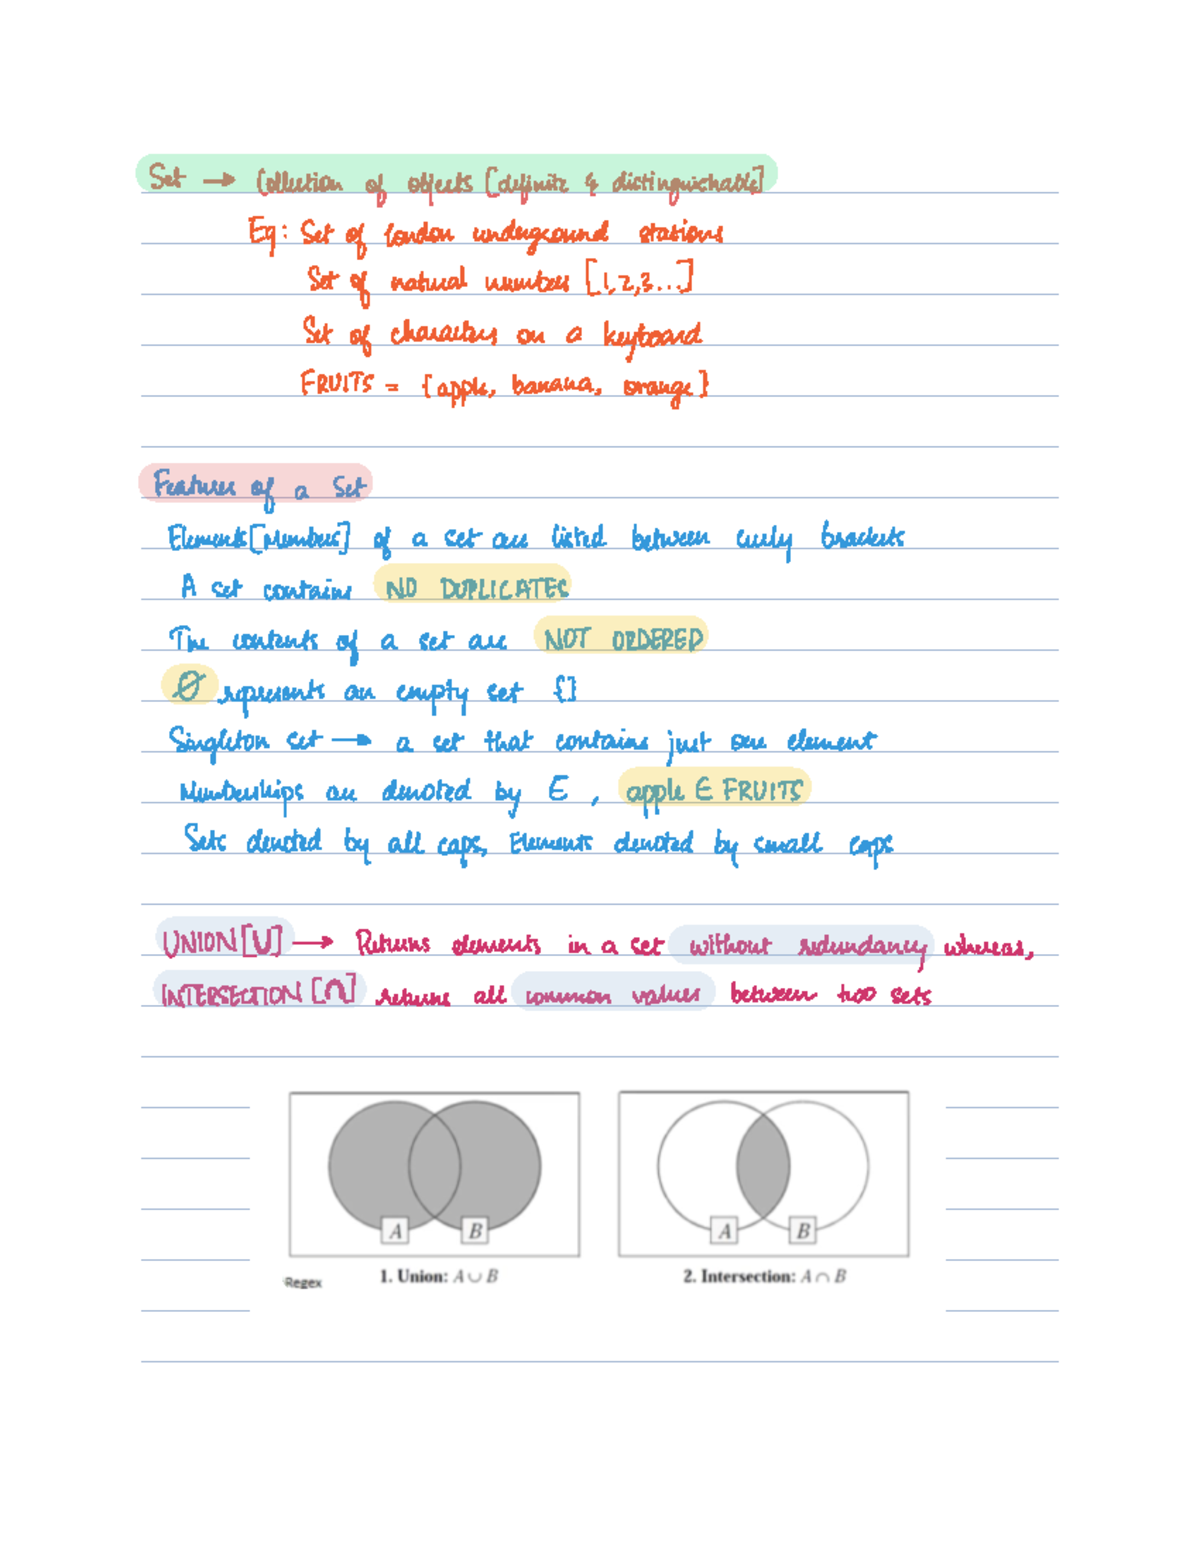 Set → Collection of objects [definite & distinguishable]
Eg: Set of london underground stations
Set of natural numbers [1,2,3...]
Set of characters on a keyboard
FRUITS = {apple, banana, orange}
Features of a Set
Elements[Members] of a set are listed between curly brackets
A set contains NO DUPLICATES
The contents of a set are NOT ORDERED
Ø represents an empty set {}
Singleton set → a set that contains just one element
Memberships are denoted by E , apple E FRUITS
Sets denoted by all caps, Elements denoted by small caps
UNION[U] → Returns elements in a set without redundancy whereas,
INTERSECTION [∩] returns all common values between two sets
A B A B
Regex 1. Union: A ∪ B 2. Intersection: A ∩ B